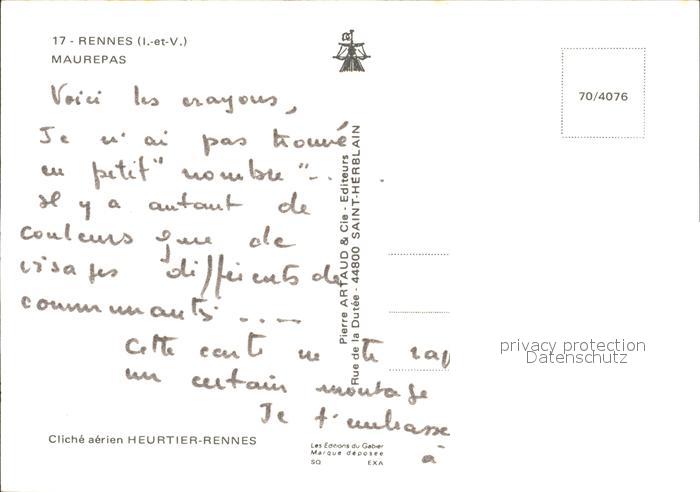 17 - RENNES (I.-et-V.)
MAUREPAS
70/4076
Voici les crayons,
Je n'ai pas trouvé
en petit "nombre"...
Il y a autant de
couleurs que de
visages différents de
communiants ...
Cette carte ne te rap
un certain montage
Je t'embrasse
à
Pierre ARTAUD & Cie - Editeurs
Rue de la Dutée - 44800 SAINT-HERBLAIN
privacy protection
Datenschutz
Cliché aérien HEURTIER-RENNES
Les Editions du Gabier
Marque déposée
SQ EXA